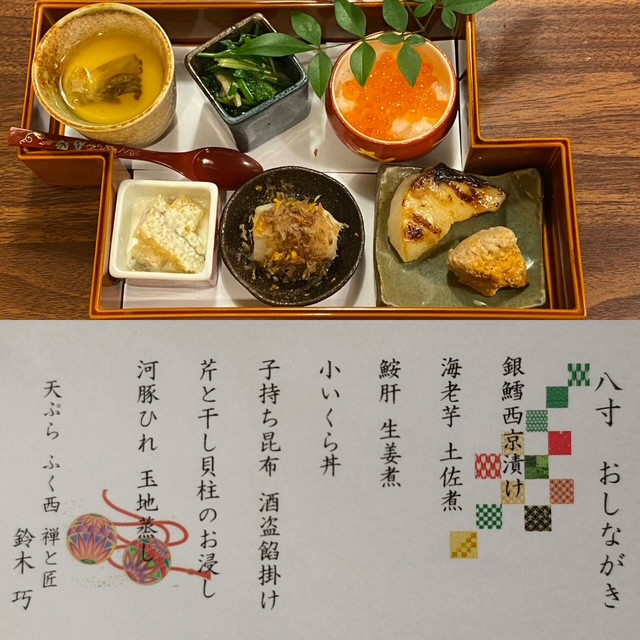 八寸 おしながき
銀鱈西京漬け
海老芋 土佐煮
鮟肝 生姜煮
小いくら丼
子持ち昆布 酒盗餡掛け
芹と干し貝柱のお浸し
河豚ひれ 玉地蒸し
天ぷら ふく西 禅と匠
鈴木 巧